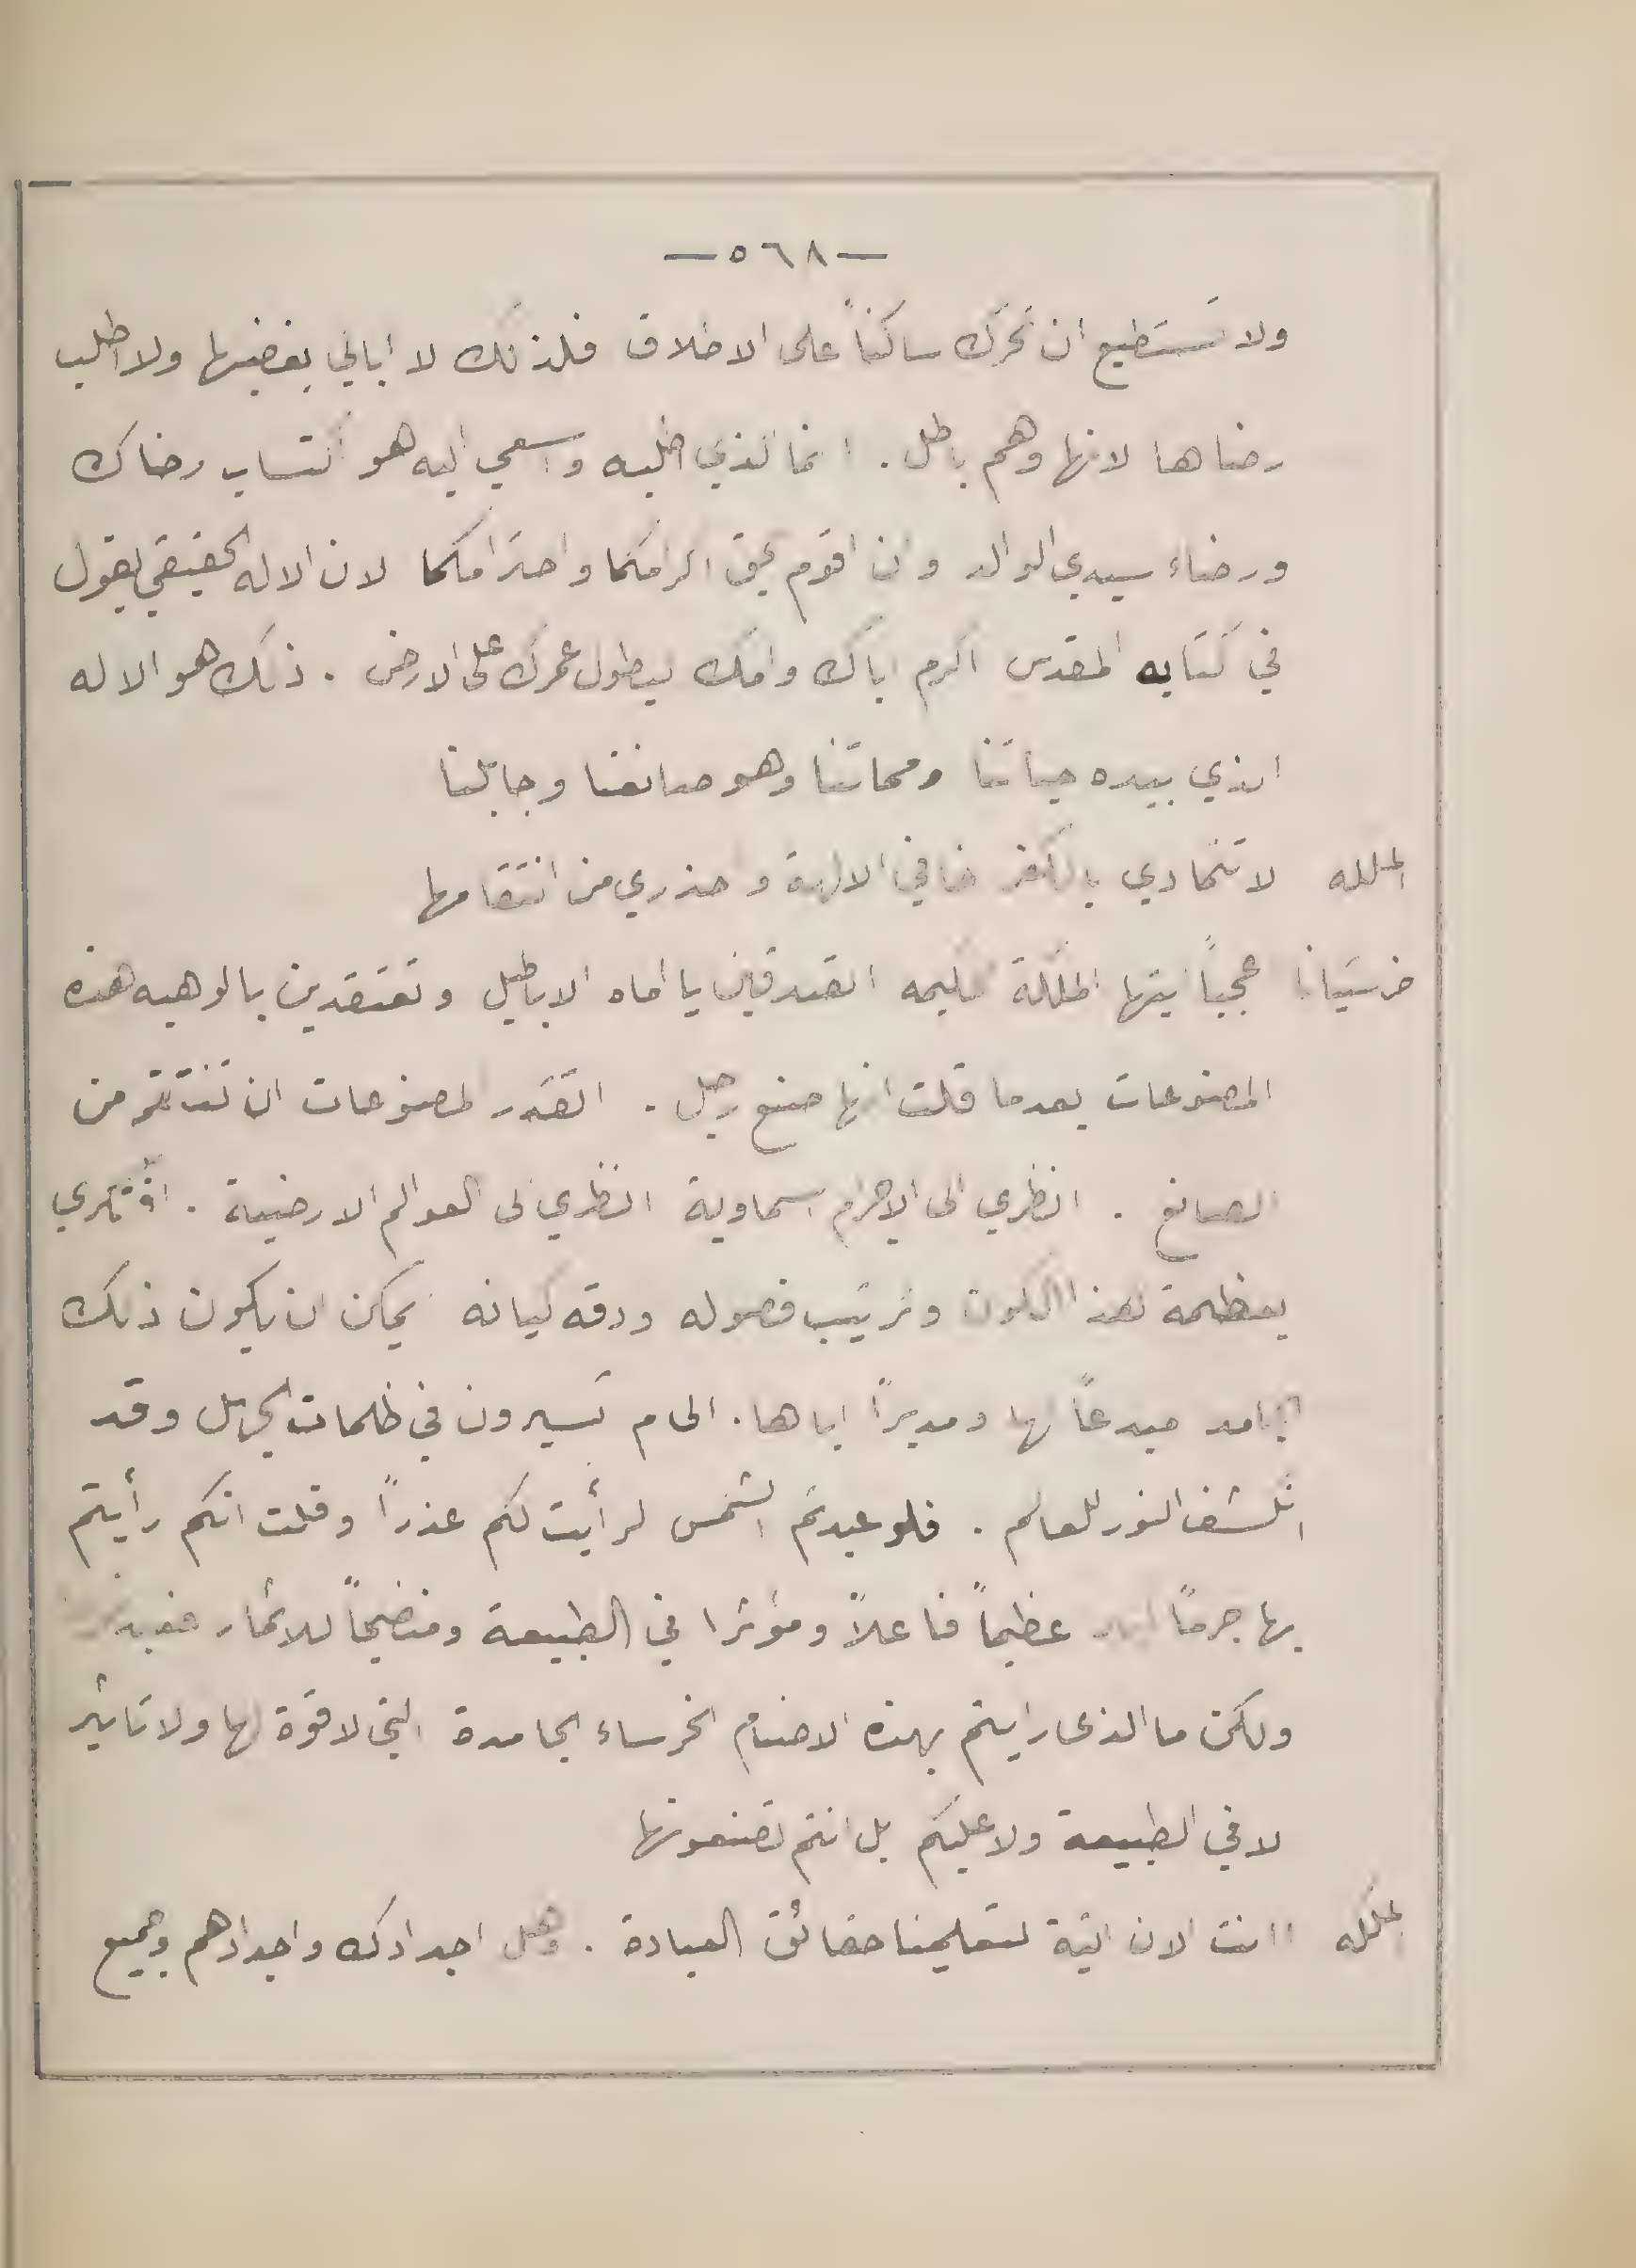 — ٥٦٨ —
ولا تستطيع ان تحرك ساكناً على الاطلاق فلذلك لا ابالي بغضبها ولا اطلب
رضاها لانها وهم باطل . انما الذي اطلبه واسعى اليه هو اكتساب رضاك
ورضاء سيدي الوالد وان اقوم بحق اكرامكما واحترامكما لان الاله الحقيقي يقول
في كتابه المقدس اكرم اباك وامك ليطول عمرك على الارض . ذلك هو الاله
الذي بيده حياتنا ومماتنا وهو صانعنا وجابلنا
الملكه لا تتمادي بالكفر خافي الالهة وحذري من انتقامها
خرستيانا عجباً ايتها الملكة الحكيمه اتصدقين يا اماه الاباطيل وتعتقدين بالوهيه هذه
المصنوعات بعدما قلت انها صنع رجل . اتقدر المصنوعات ان تنتقم من
الصانع . انظري الى الاجرام السماوية انظري الى العوالم الارضية . افتكري
بعظمة هذا الكون وترتيب فصوله ودقه كيانه ايمكن ان يكون ذلك
الجامد مبدعاً لها ومديراً اياها . الى م تسيرون في ظلمات الجهل وقد
انكشف النور للعالم . فلو عبدتم الشمس لرأيت لكم عذراً وقلت انكم رأيتم
بها جرماً عظيماً فاعلاً ومؤثرا في الطبيعة ومنضجاً للاثمار
ولكن ما الذى رايتم بهذه الاصنام الخرساء الجامدة التي لا قوة لها ولا تاثير
لا في الطبيعة ولا عليكم بل انتم تصنعونها
الملكه اانت الان اتية لتعلمينا حقائق العبادة . وهل اجدادك واجدادهم وجميع